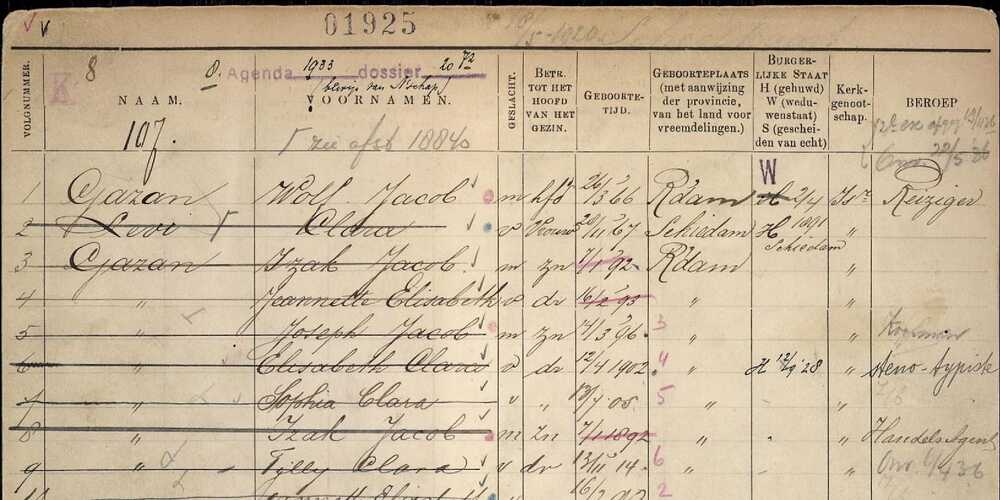 01925
5-1920
8 Agenda 1933 dossier 2072
VOLGNUMMER. NAAM. VOORNAMEN. GESLACHT. BETR. TOT HET HOOFD VAN HET GEZIN. GEBOORTE-TIJD. GEBOORTEPLAATS (met aanwijzing der provincie, van het land voor vreemdelingen.) BURGER-LIJKE STAAT H (gehuwd) W (wedu-wenstaat) S (geschei-den van echt) Kerk-genoot-schap. BEROEP
K
107. zie afst 1884
W
1 Gazan Wolf Jacob m hfd 26/3 66 R'dam H 2/4 Isr. Reiziger
2 Levi Clara v Vrouw 20/11 67 Schiedam H 1891 Schiedam "
3 Gazan Izak Jacob m zn 7/1 92 R'dam "
4 " Jeannette Elisabeth v dr 16/2 93 " "
5 " Joseph Jacob m zn 14/3 96 3 " " Koopman
6 " Elisabeth Clara v dr 12/4 1902 4 " H 12/9 28 " steno-typiste
7 " Sophia Clara " " 18/7 05 5 " "
8 " Izak Jacob m zn 7/1 1892 " " Handels Agent
9 " Tilly Clara v dr 13/11 14 6 " "
16/2 2